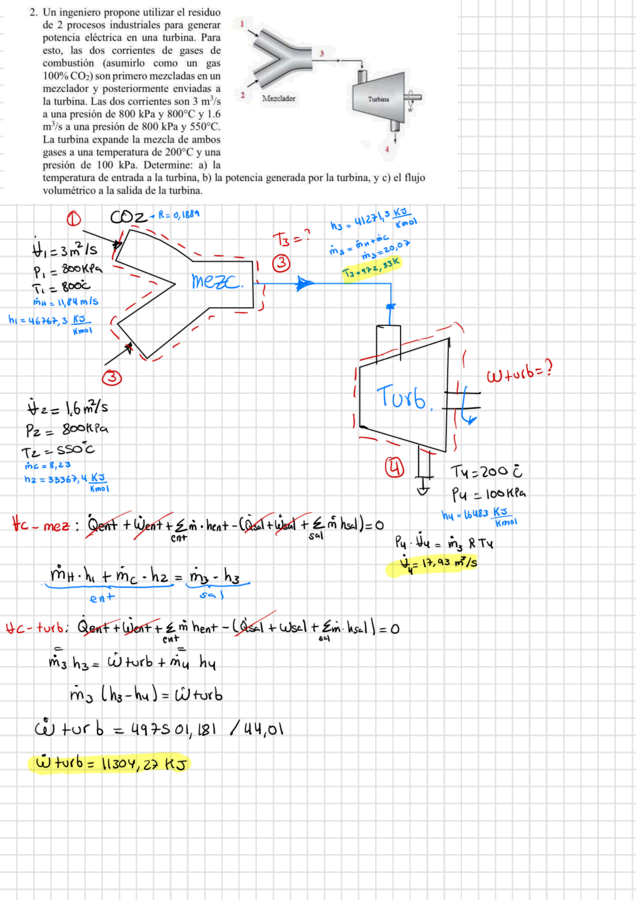 2. Un ingeniero propone utilizar el residuo
de 2 procesos industriales para generar
potencia eléctrica en una turbina. Para
esto, las dos corrientes de gases de
combustión (asumirlo como un gas
100% CO₂) son primero mezcladas en un
mezclador y posteriormente enviadas a
la turbina. Las dos corrientes son 3 m³/s
a una presión de 800 kPa y 800°C y 1.6
m³/s a una presión de 800 kPa y 550°C.
La turbina expande la mezcla de ambos
gases a una temperatura de 200°C y una
presión de 100 kPa. Determine: a) la
temperatura de entrada a la turbina, b) la potencia generada por la turbina, y c) el flujo
volumétrico a la salida de la turbina.
1
2
3
Mezclador
Turbina
4
①
CO2 → R=0,1889
V̇1 = 3m²/s
P1 = 800KPa
T1 = 800°C
ṁH = 11,84 m/s
h1 = 46767,3 KJ/Kmol
mezc.
T3 = ?
③
h3 = 41271,3 KJ/Kmol
ṁ3 = ṁH + ṁC
ṁ3 = 20,07
T3 = 972,33K
③
V̇2 = 1,6m²/s
P2 = 800KPa
T2 = 550°C
ṁC = 8,23
h2 = 33367,4 KJ/Kmol
Turb.
Wturb=?
④
T4 = 200°C
P4 = 100KPa
h4 = 16483 KJ/Kmol
P4 · V̇4 = ṁ3 R T4
V̇4 = 17,93 m³/s
Vc-mez : Q̇ent + Ẇent + Σ ṁ · hent - (Q̇sal + Ẇsal + Σ ṁ hsal) = 0
ent
sal
ṁH · h1 + ṁC · h2 = ṁ3 - h3
ent
sal
Vc-turb: Q̇ent + Ẇent + Σ ṁ hent - (Q̇sal + Wsal + Σ ṁ · hsal) = 0
ent
sal
ṁ3 h3 = Ẇturb + ṁ4 h4
ṁ3 (h3 - h4) = Ẇturb
Ẇturb = 497501,181 / 44,01
Ẇturb = 11304,27 KJ